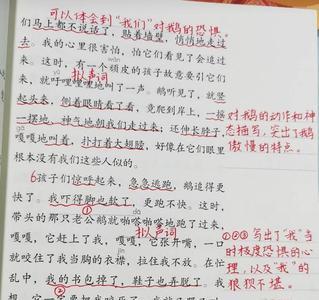 可以体会到“我们”对鹅的恐惧。
们马上都不说话了，贴着墙壁，悄悄地走过
去。我的心里很害怕，怕它们看见了会追过
来。这时，有一个顽皮的孩子故意要引它们
wán
拟声词
来，就吁哩哩哩地叫了一声。鹅听见了，就竖
起头来，侧着眼睛看了看，竟爬到岸上，一摆
一摆地、神气地朝我们走过来；还伸长脖子，
嘎嘎地叫着，扑打着大翅膀，好像在它们眼里
根本没有我们这些人似的。
对鹅的动作和神
态描写，突出了鹅
傲慢的特点。
6孩子们惊呼起来，急急逃跑，鹅追得更
快了。我吓得脚也软了，更跑不快。这时，
①
拟声词
带头的那只老公鹅就啪嗒啪嗒地跑了过来，
嘎嘎，它赶上了我，嘎嘎，它张开嘴，一口
就咬住了我当胸的衣襟，拉住我不放。在忙
乱中，我的书包掉了，鞋子也弄脱了。我
②
①②③写出了“我”当
时极度恐惧的心
理，以及“我”的
狼狈不堪。